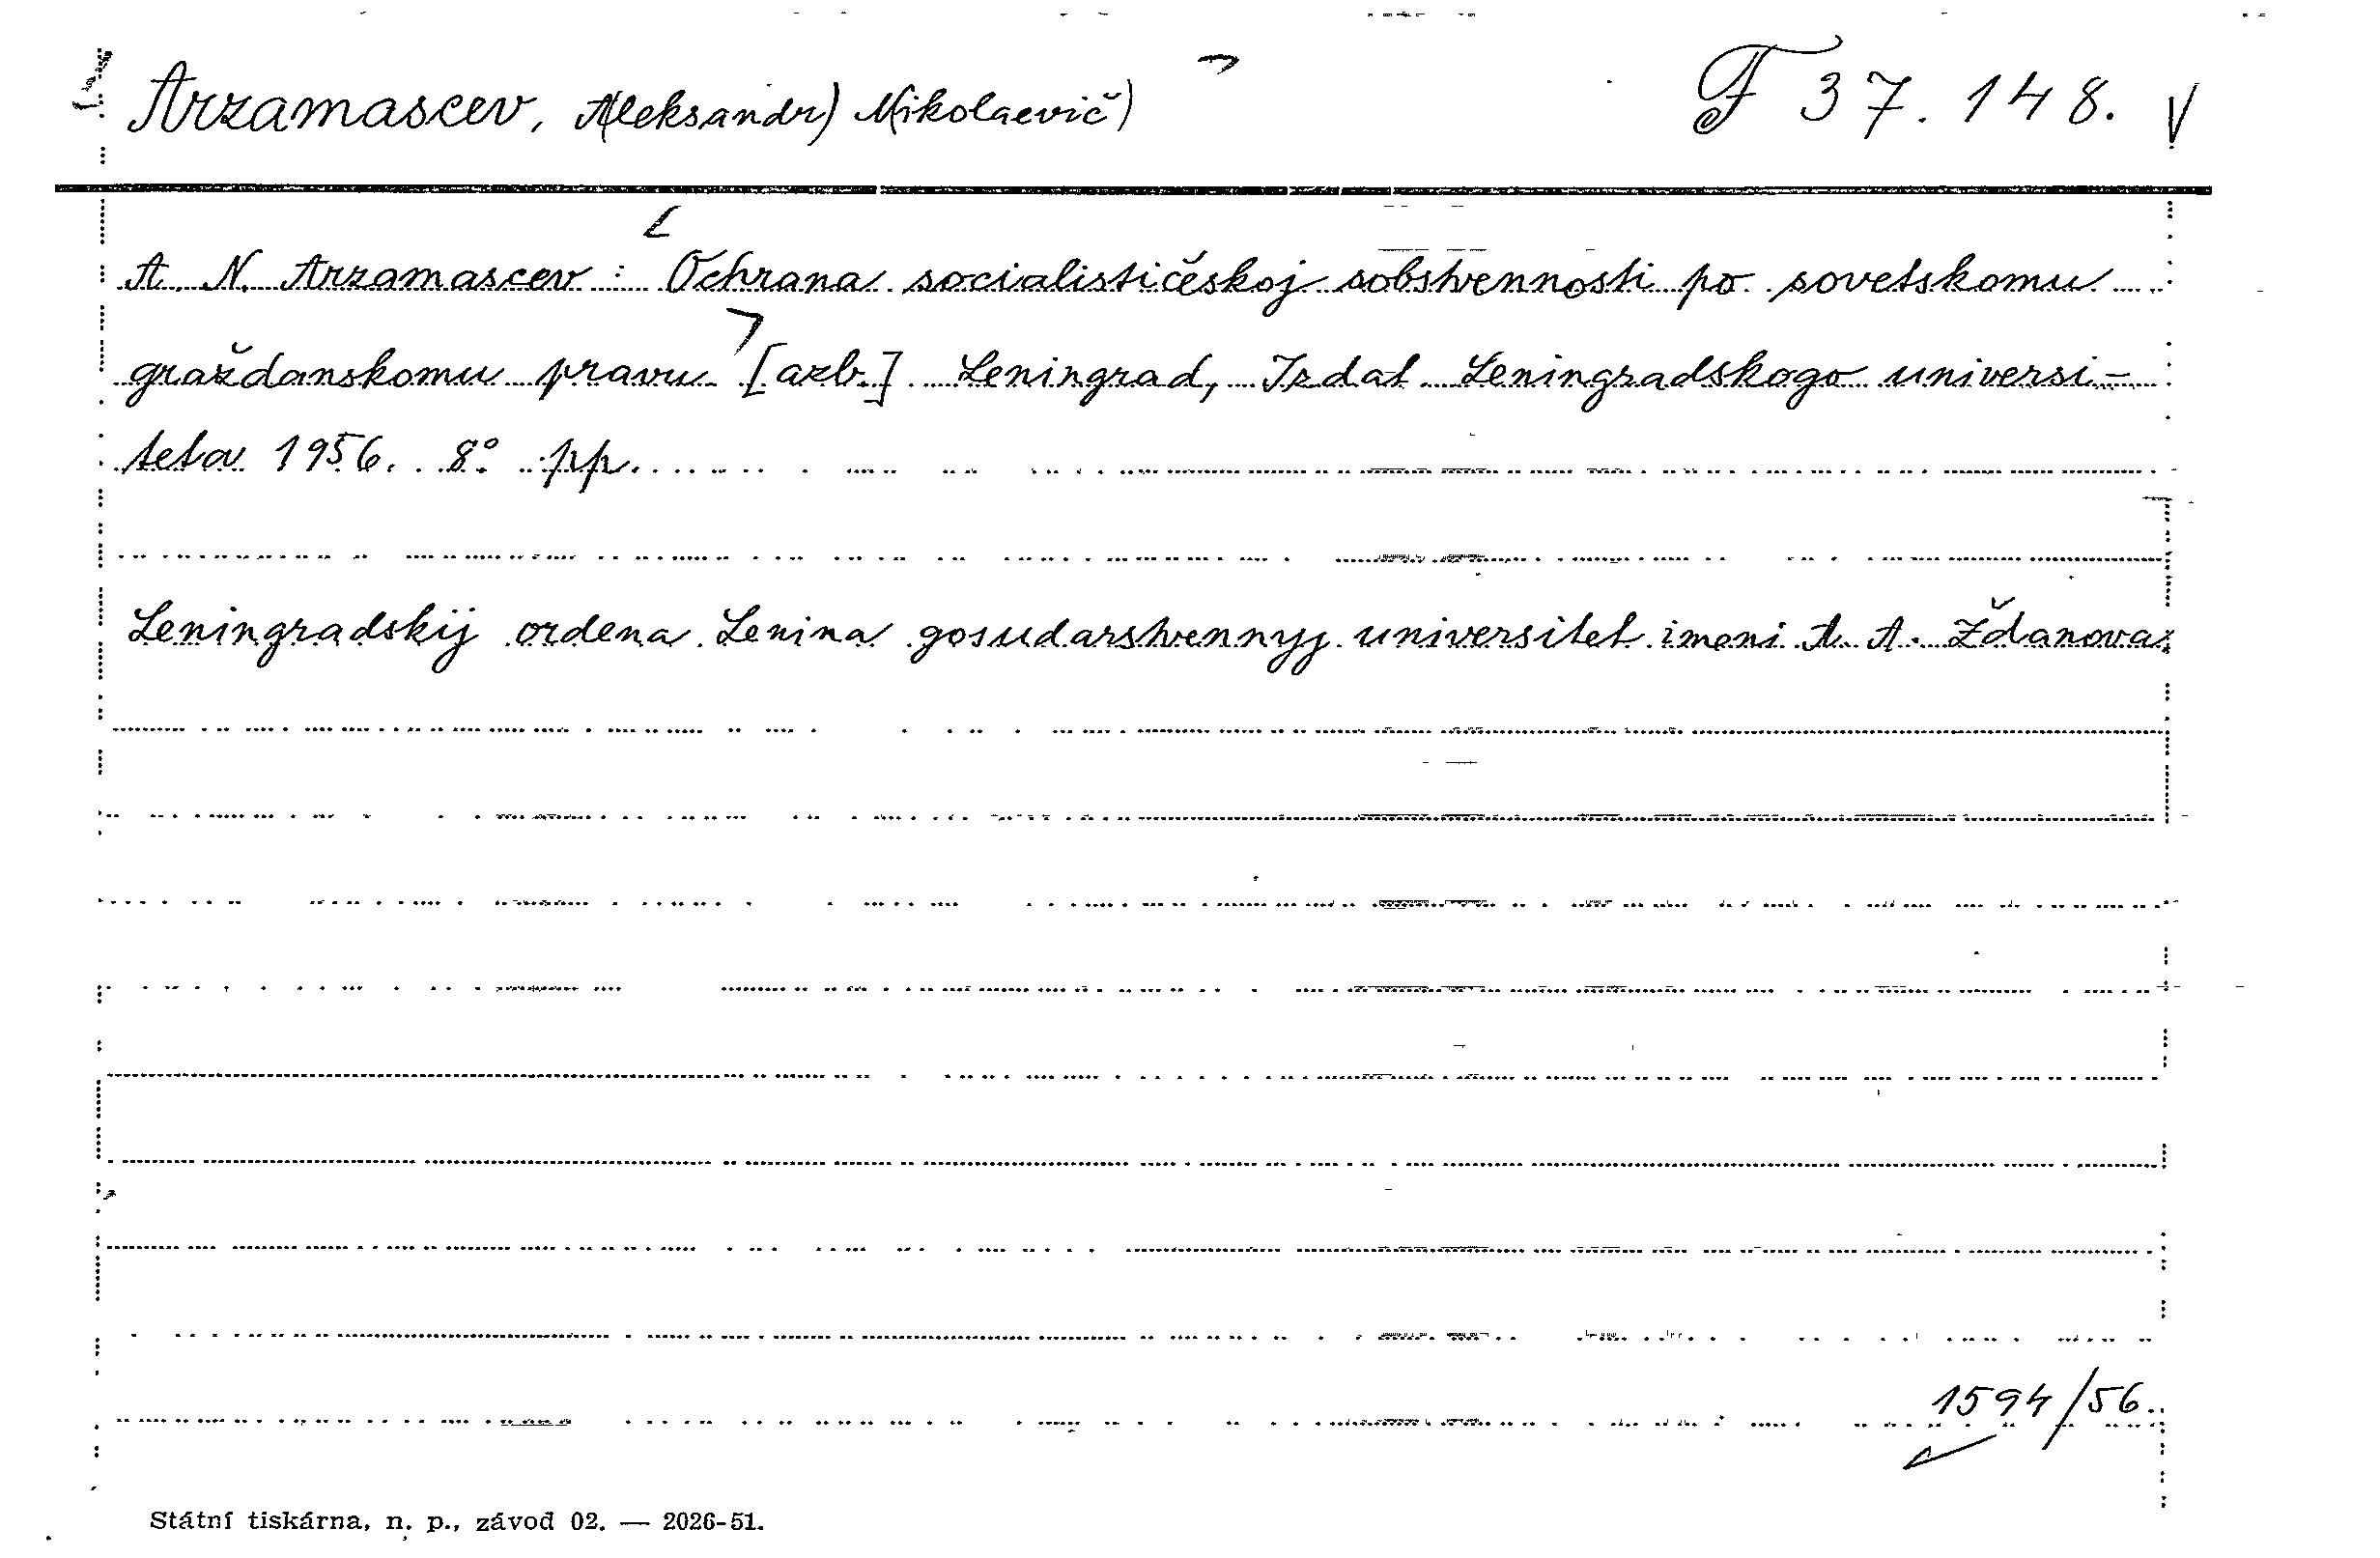 Arzamascev, A(leksandr) N(ikolaevič) F 37.148.
A. N. Arzamascev : Ochrana socialističeskoj sobstvennosti po sovetskomu
graždanskomu pravu [azb.] Leningrad, Izdat Leningradskogo universi-
teta 1956. 8° pp.
Leningradskij ordena Lenina gosudarstvennyj universitet imeni A. A. Ždanova.
1594/56.
Státní tiskárna, n. p., závod 02. — 2026-51.